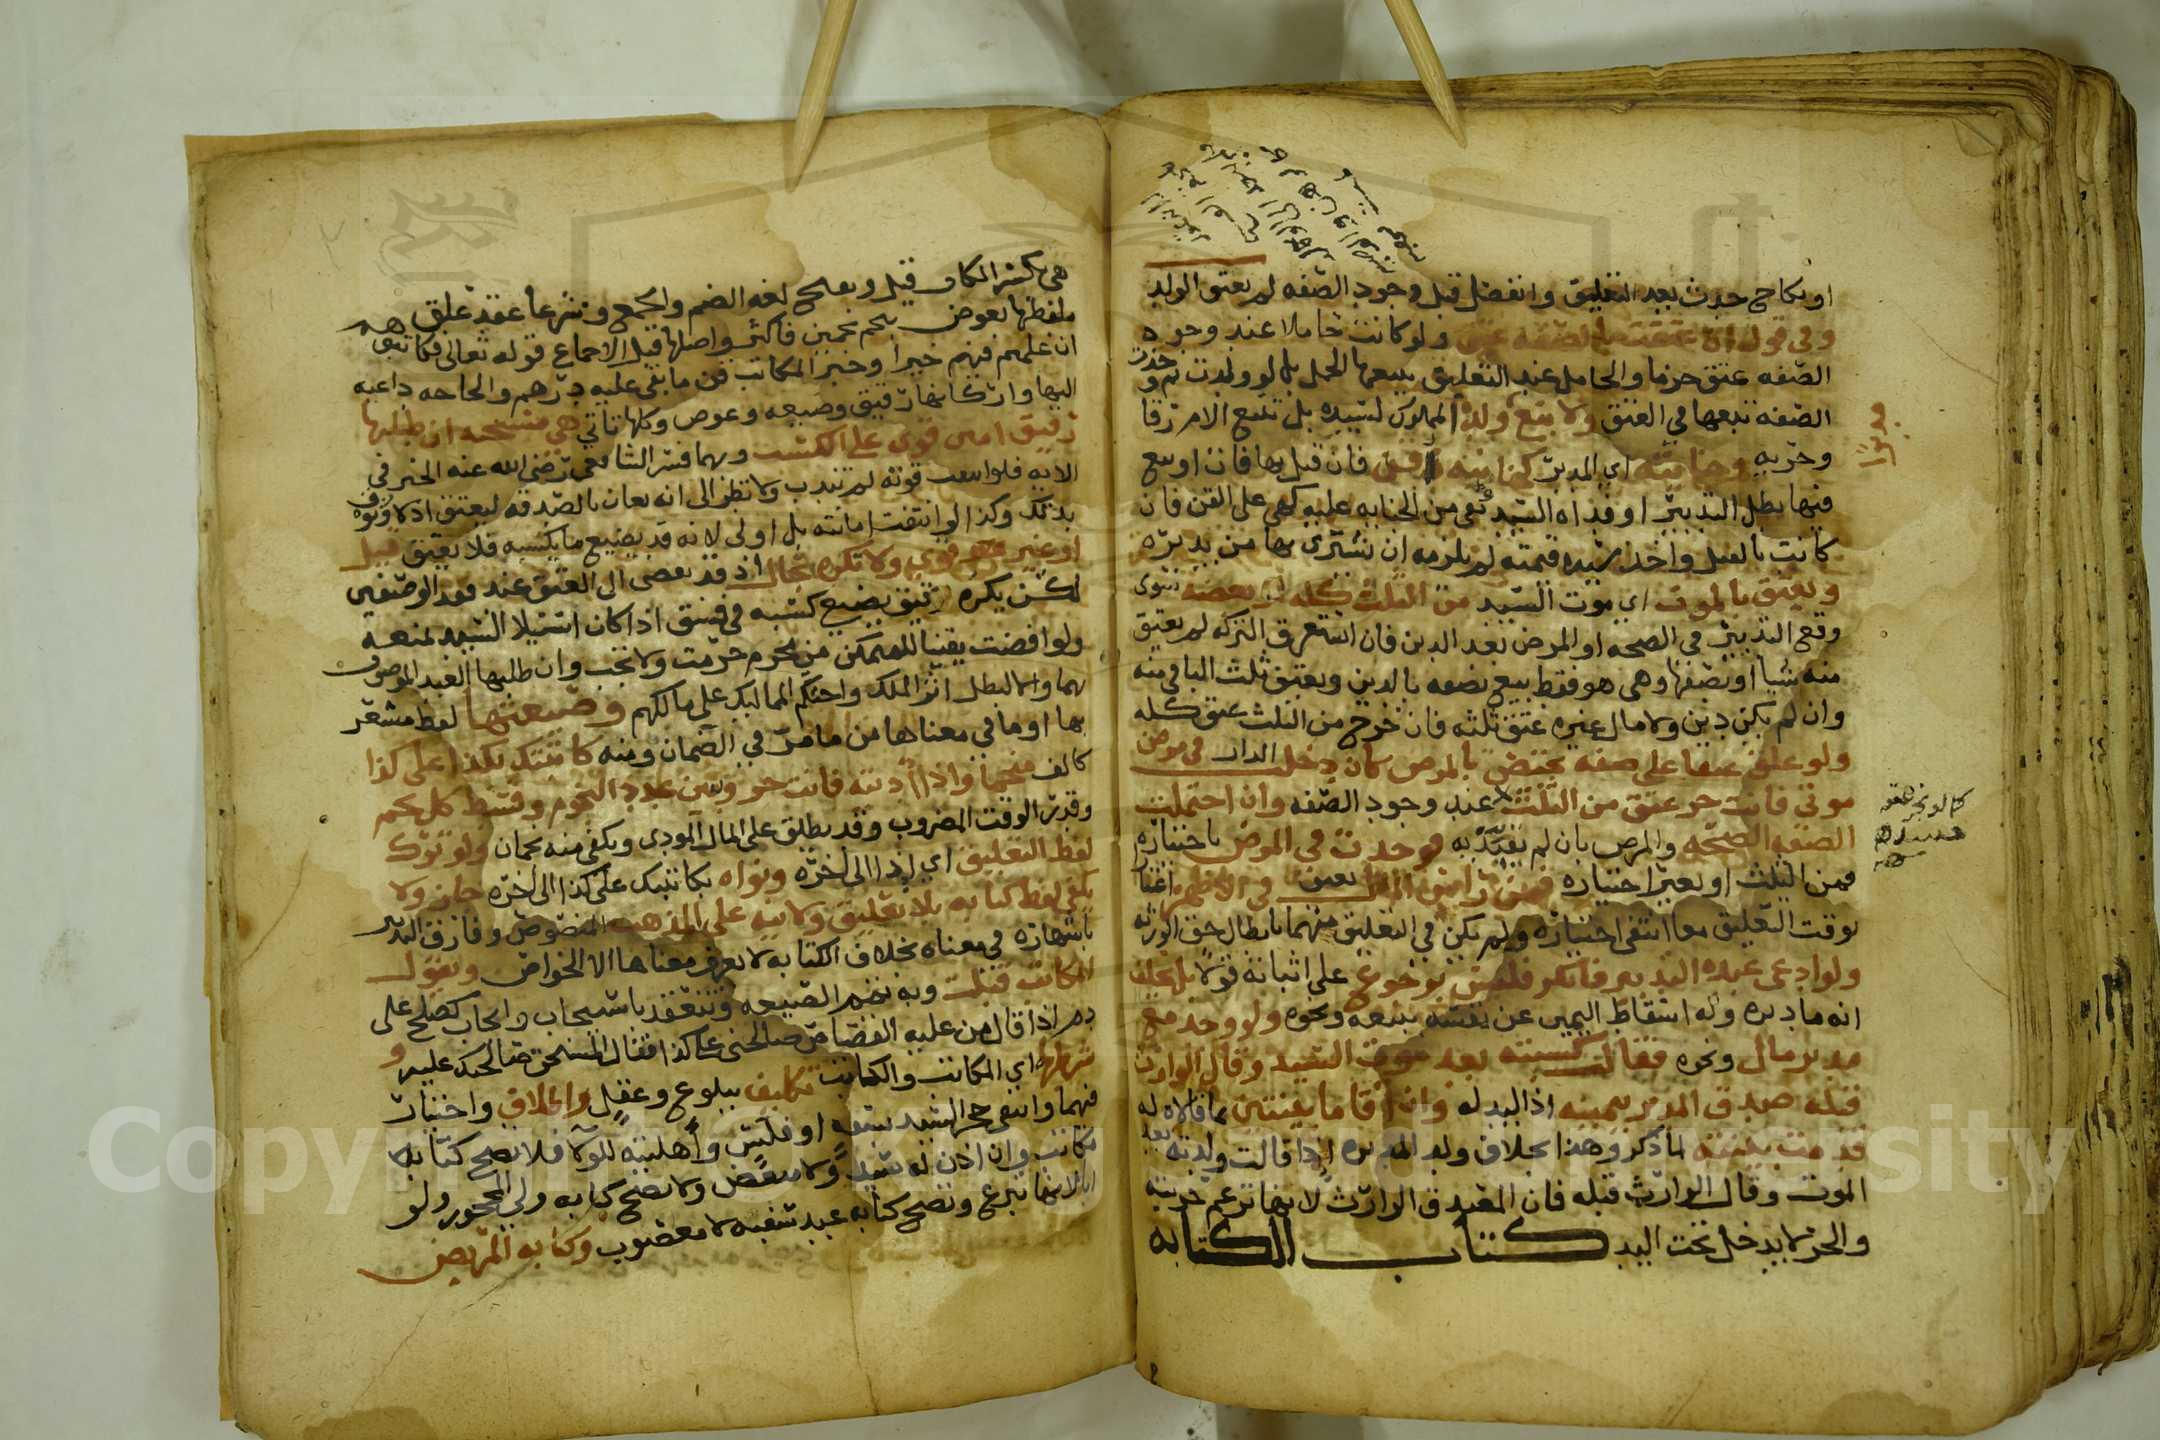 او نكاح حدث بعد التعليق وانفصل قبل وجود الصفه لم يعتق الولد
وفي قول ان عتقت بالصفه عتق ولو كانت حاملا عند وجوده
الصفه عتق جزما والحامل عند التعليق يتبعها الحمل بل لو ولدت ثم وجدت
الصفه تبعها في العتق ولا يتبع ولد المملوك لسيده بل يتبع الام رقا
وحريه وجنايته اي المدبر كجنايه قن فان قتل بها فات او بيع
فيها بطل التدبير او فداه السيد بقي من الجنايه عليه كهي على القن فان
كانت بالقتل واخذ سيده قيمته لم يلزمه ان يشتري بها من يدبره
ويعتق بالموت اي موت السيد من الثلث كله او بعضه سوى
وقع التدبير في الصحه او المرض بعد الدين فان استغرق التركه لم يعتق
منه شيا او نصفها وهي هو فقط بيع نصفه بالدين ويعتق ثلث الباقي منه
وان لم يكن دين ولا مال غيره عتق ثلثه فان خرج من الثلث عتق كله
ولو علق عتقا على صفه تختص بالمرض كان دخلت الدار في مرض
موتي فانت حر عتق من الثلث عند وجود الصفه وان احتملت
الصفه الصحه والمرض بان لم تقيد به فوجدت في المرض باختياره
فمن الثلث او بغير اختياره فمن راس المال يعتق في الاظهر اعتبارا
بوقت التعليق معا انتفى اختياره ولم يكن في التعليق متهما بابطال حق الورثه
ولو ادعى عبده التدبير فانكر فليس برجوع على اثباته قولا بل يحلف
انه ما دبره وله اسقاط اليمين عن نفسه ببيعه ونحوه ولو وجد مع
مدبر مال ونحوه فقال كسبته بعد موت السيد وقال الوارث
قبله صدق المدبر بيمينه اذ اليد له وان اقاما بينتين بما قالاه له
قدمت بينته لما ذكر وهذا بخلاف ولد المدبره اذا قالت ولدته بعد
الموت وقال الوارث قبله فان المصدق الوارث لانها تزعم حريته
والحر لا يدخل تحت اليد كتاب الكتابه
كما لو نجز عتقه
هي بكسر الكاف قيل وبفتح لغه الضم والجمع وشرعا عقد عتق
بلفظها بعوض منجم بنجمين فاكثر واصلها قبل الاجماع قوله تعالى فكاتبوهم
ان علمتم فيهم خيرا وخبر المكاتب قن ما بقي عليه درهم والحاجه داعيه
اليها واركانها رقيق وصيغه وعوض وكلها تاتي هي مستحبه ان طلبها
رقيق امين قوي على الكسب وبهما فسر الشافعي رضي الله عنه الخير في
الايه فلو انتفت قوته لم تندب ولا نظر الى انه يعان بالصدقه ليعتق اذ لا وثوق
بذلك وكذا لو انتفت امانته بل اولى لانه قد يضيع ما يكسبه فلا يعتق قيل
او غير قوي ولا تكره بحال اذ قد يفضي الى العتق عند فقد الوصفين
لكن يكره رقيق يضيع كسبه في فسق اذا كان استيلا السيد يمنعه
ولو افضت يقينا للتمكن من محرم حرمت ولا تجب وان طلبها العبد الموصوف
بهما والا لبطل اثر الملك واحتكم المماليك على مالكهم وصيغتها لفظ مشعر
بها او ما في معناها من ما مر في الضمان ومنه كاتبتك بكذا على كذا
كالف منجما واذا اديته فانت حر وبين عدد النجوم وقسط كل نجم
وقدر الوقت المضروب وقد يطلق على المال المودى ويكفي منه نجمان ولو ترك
لفظ التعليق اي اذا الى اخره ونواه بكاتبتك على كذا الى اخره جاز ولا
يكفي لفظ كتابه بلا تعليق ولا نيه على المذهب المنصوص وفارق التدبير
باشتهاره في معناه بخلاف الكتابه لا يعرف معناها الا الخواص ويقول
المكاتب قبلت وبه تتم الصيغه وتنعقد باستيجاب وايجاب كصلح على
دم اذا قال من عليه القصاص صالحني على كذا فقال المستحق صالحتك عليه و
شرطهما اي المكاتب والكاتب تكليف ببلوغ وعقل واطلاق واختيار
فيهما وانتفى حجر السيد بسفه او فلس واهليته للولا فلا يصح كتابه
مكاتب وان اذن له سيد ولا مبعض ولا تصح كتابه ولي المحجور ولو
ابا لانها تبرع وتصح كتابه عبد سفيه لا مغصوب وكتابه المريض